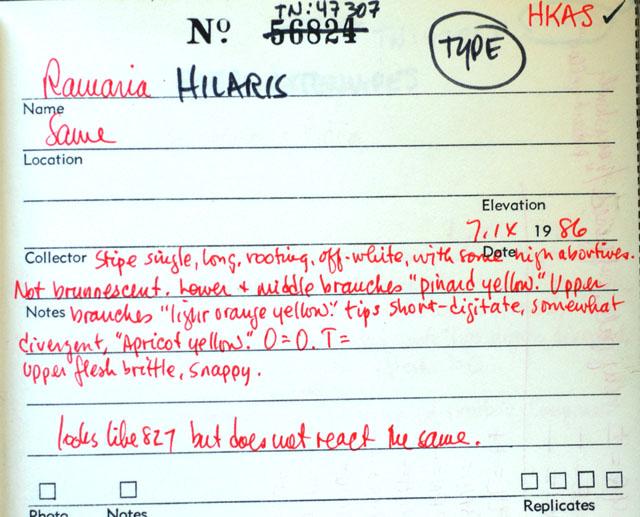 TN: 47307
Nº 56824
TYPE
HKAS ✓
Ramaria HILARIS
Name
Same
Location
Elevation
7.IX 1986
Collector Date
Stipe single, long, rooting, off-white, with some high abortives.
Not brunnescent. Lower + middle branches "pinard yellow." Upper
Notes branches "light orange yellow." tips short-digitate, somewhat
divergent, "Apricot yellow." O=O. T=
Upper flesh brittle, snappy.
looks like 827 but does not react the same.
Photo Notes Replicates